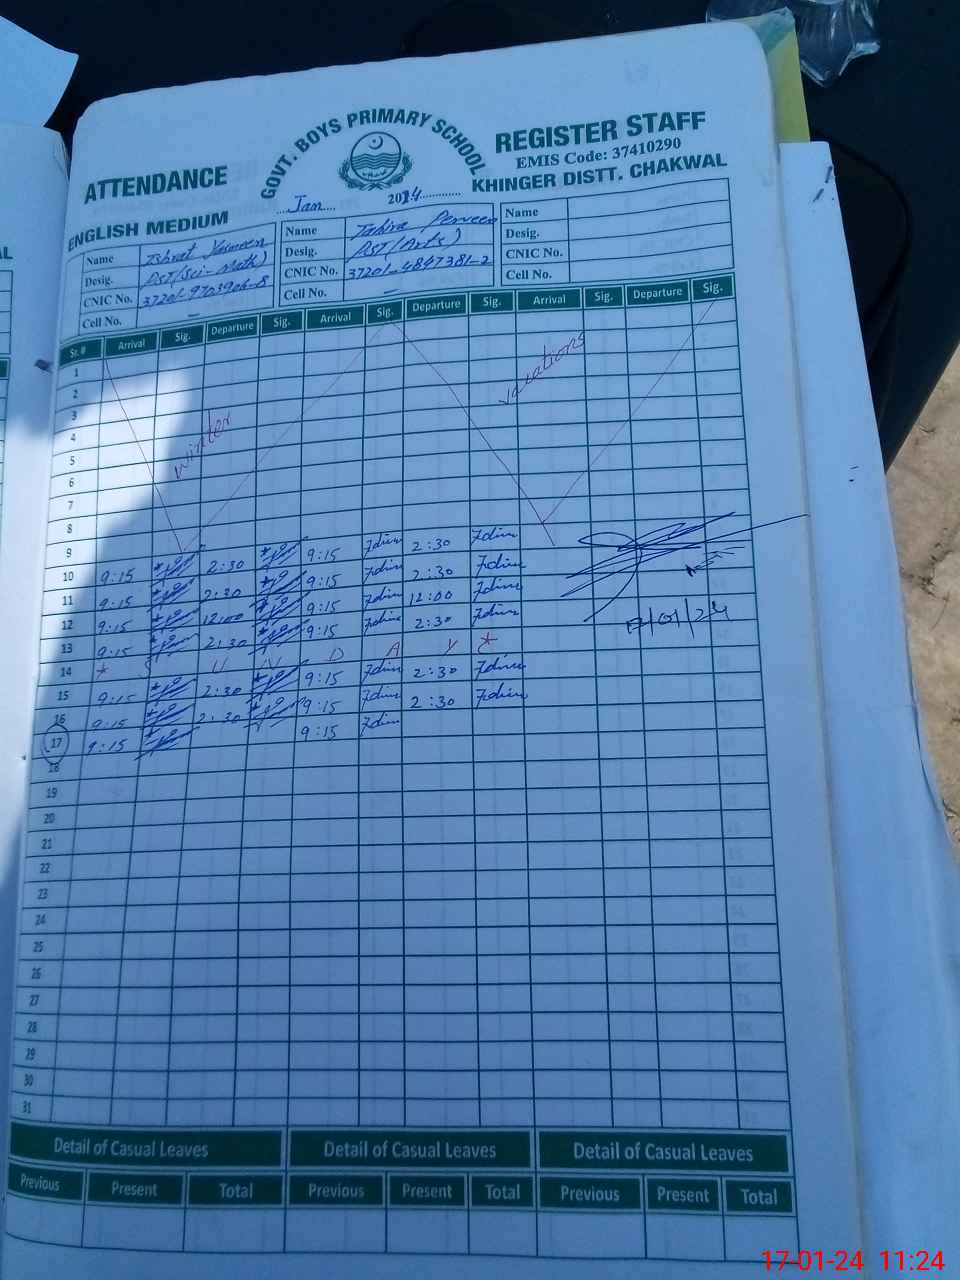 GOVT. BOYS PRIMARY SCHOOL
ATTENDANCE REGISTER STAFF
EMIS Code: 37410290
ENGLISH MEDIUM KHINGER DISTT. CHAKWAL
Jan 2024
Name Ishrat Yasmeen Name Tahira Perveen Name
Desig. PST(Sci-Math) Desig. PST(Arts) Desig.
CNIC No. 37201-9703906-8 CNIC No. 37201-4847381-2 CNIC No.
Cell No. – Cell No. – Cell No.
Sr. # Arrival Sig. Departure Sig. Arrival Sig. Departure Sig. Arrival Sig. Departure Sig.
1
2
3
4
5
6
7
8
winter vacations
9
10 9:15 2:30 9:15 2:30
11 9:15 2:30 9:15 2:30
12 9:15 12:00 9:15 12:00
13 9:15 2:30 9:15 2:30
14 * S U N D A Y *
15 9:15 2:30 9:15 2:30
16 9:15 2:30 9:15 2:30
17 9:15 9:15
18
19
20
21
22
23
24
25
26
27
28
29
30
31
17/01/24
Detail of Casual Leaves Detail of Casual Leaves Detail of Casual Leaves
Previous Present Total Previous Present Total Previous Present Total
17-01-24 11:24